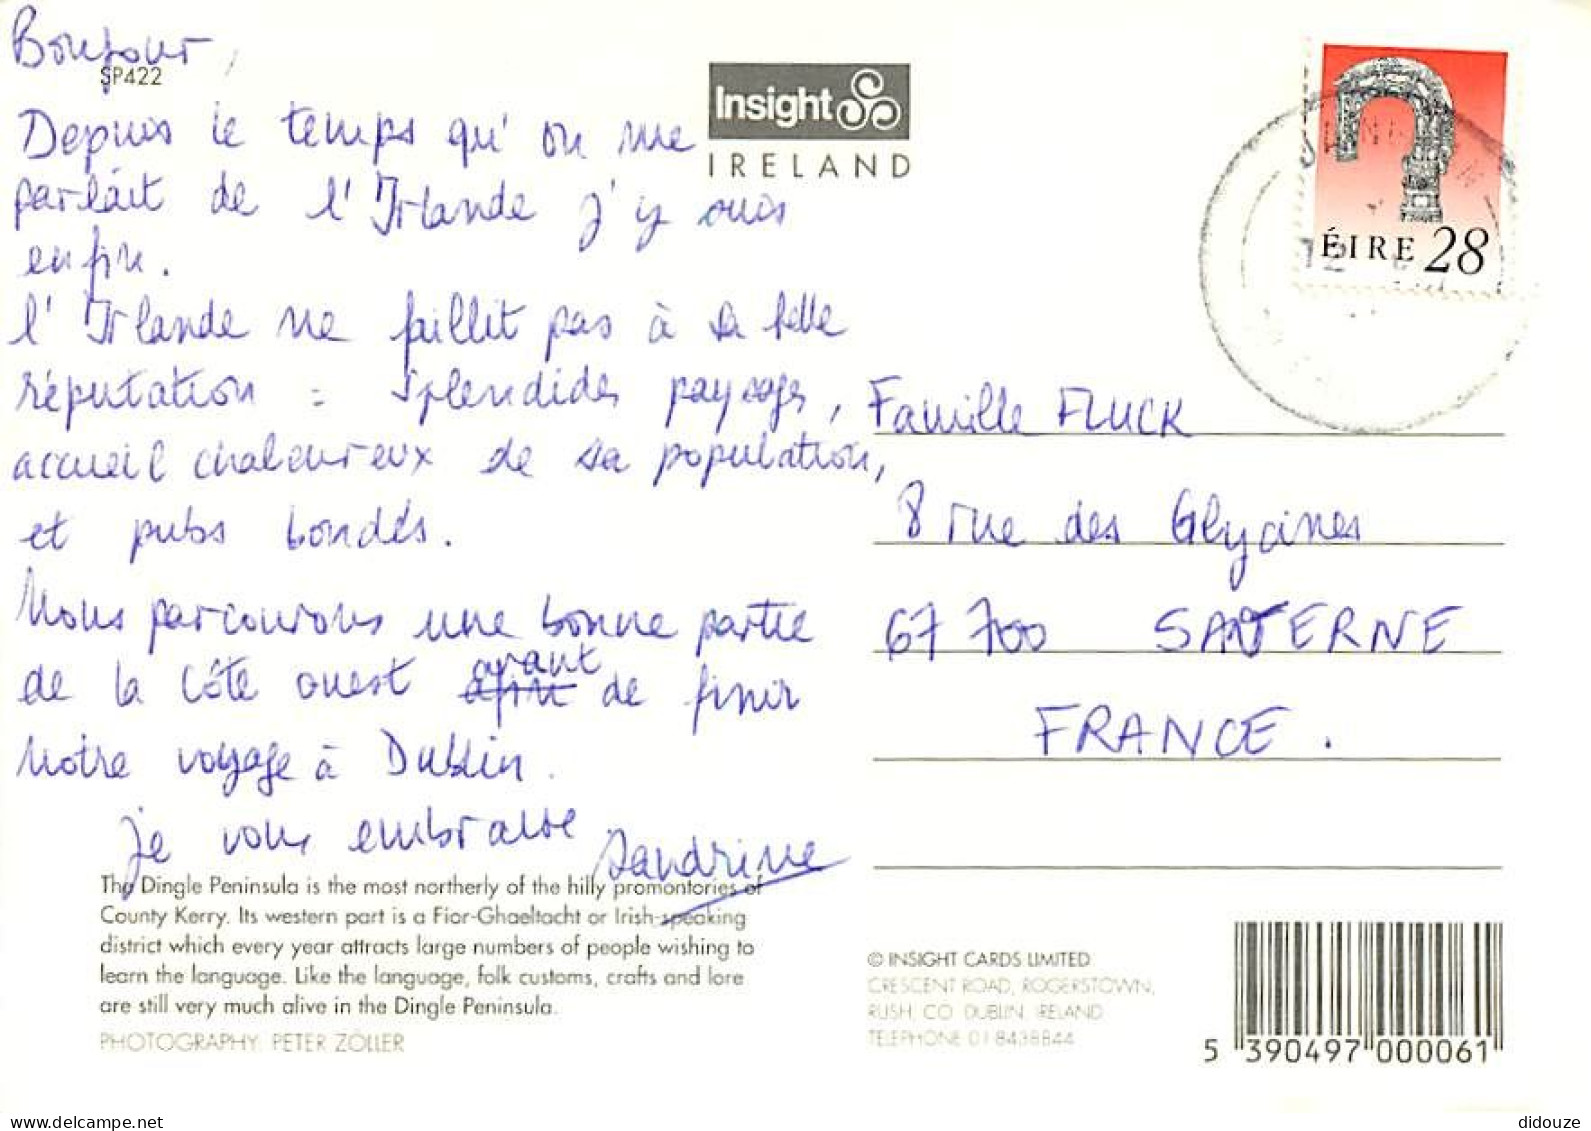 Bonjour,
SP422
Depuis le temps qu'on me
parlait de l'Irlande j'y suis
enfin.
l'Irlande ne faillit pas à sa belle
réputation : splendides paysages,
accueil chaleureux de sa population,
et pubs bondés.
Nous parcourons une bonne partie
de la côte ouest avant de finir
notre voyage à Dublin.
je vous embrasse
Sandrine
Insight
IRELAND
ÉIRE 28
12
Famille FLUCK
8 rue des Glycines
67 700 SAVERNE
FRANCE.
The Dingle Peninsula is the most northerly of the hilly promontories of
County Kerry. Its western part is a Fior-Ghaeltacht or Irish-speaking
district which every year attracts large numbers of people wishing to
learn the language. Like the language, folk customs, crafts and lore
are still very much alive in the Dingle Peninsula.
PHOTOGRAPHY: PETER ZÖLLER
© INSIGHT CARDS LIMITED
CRESCENT ROAD, ROGERSTOWN,
RUSH, CO. DUBLIN, IRELAND
TELEPHONE 01 8438844
5 390497 000061
delcampe.net
didouze